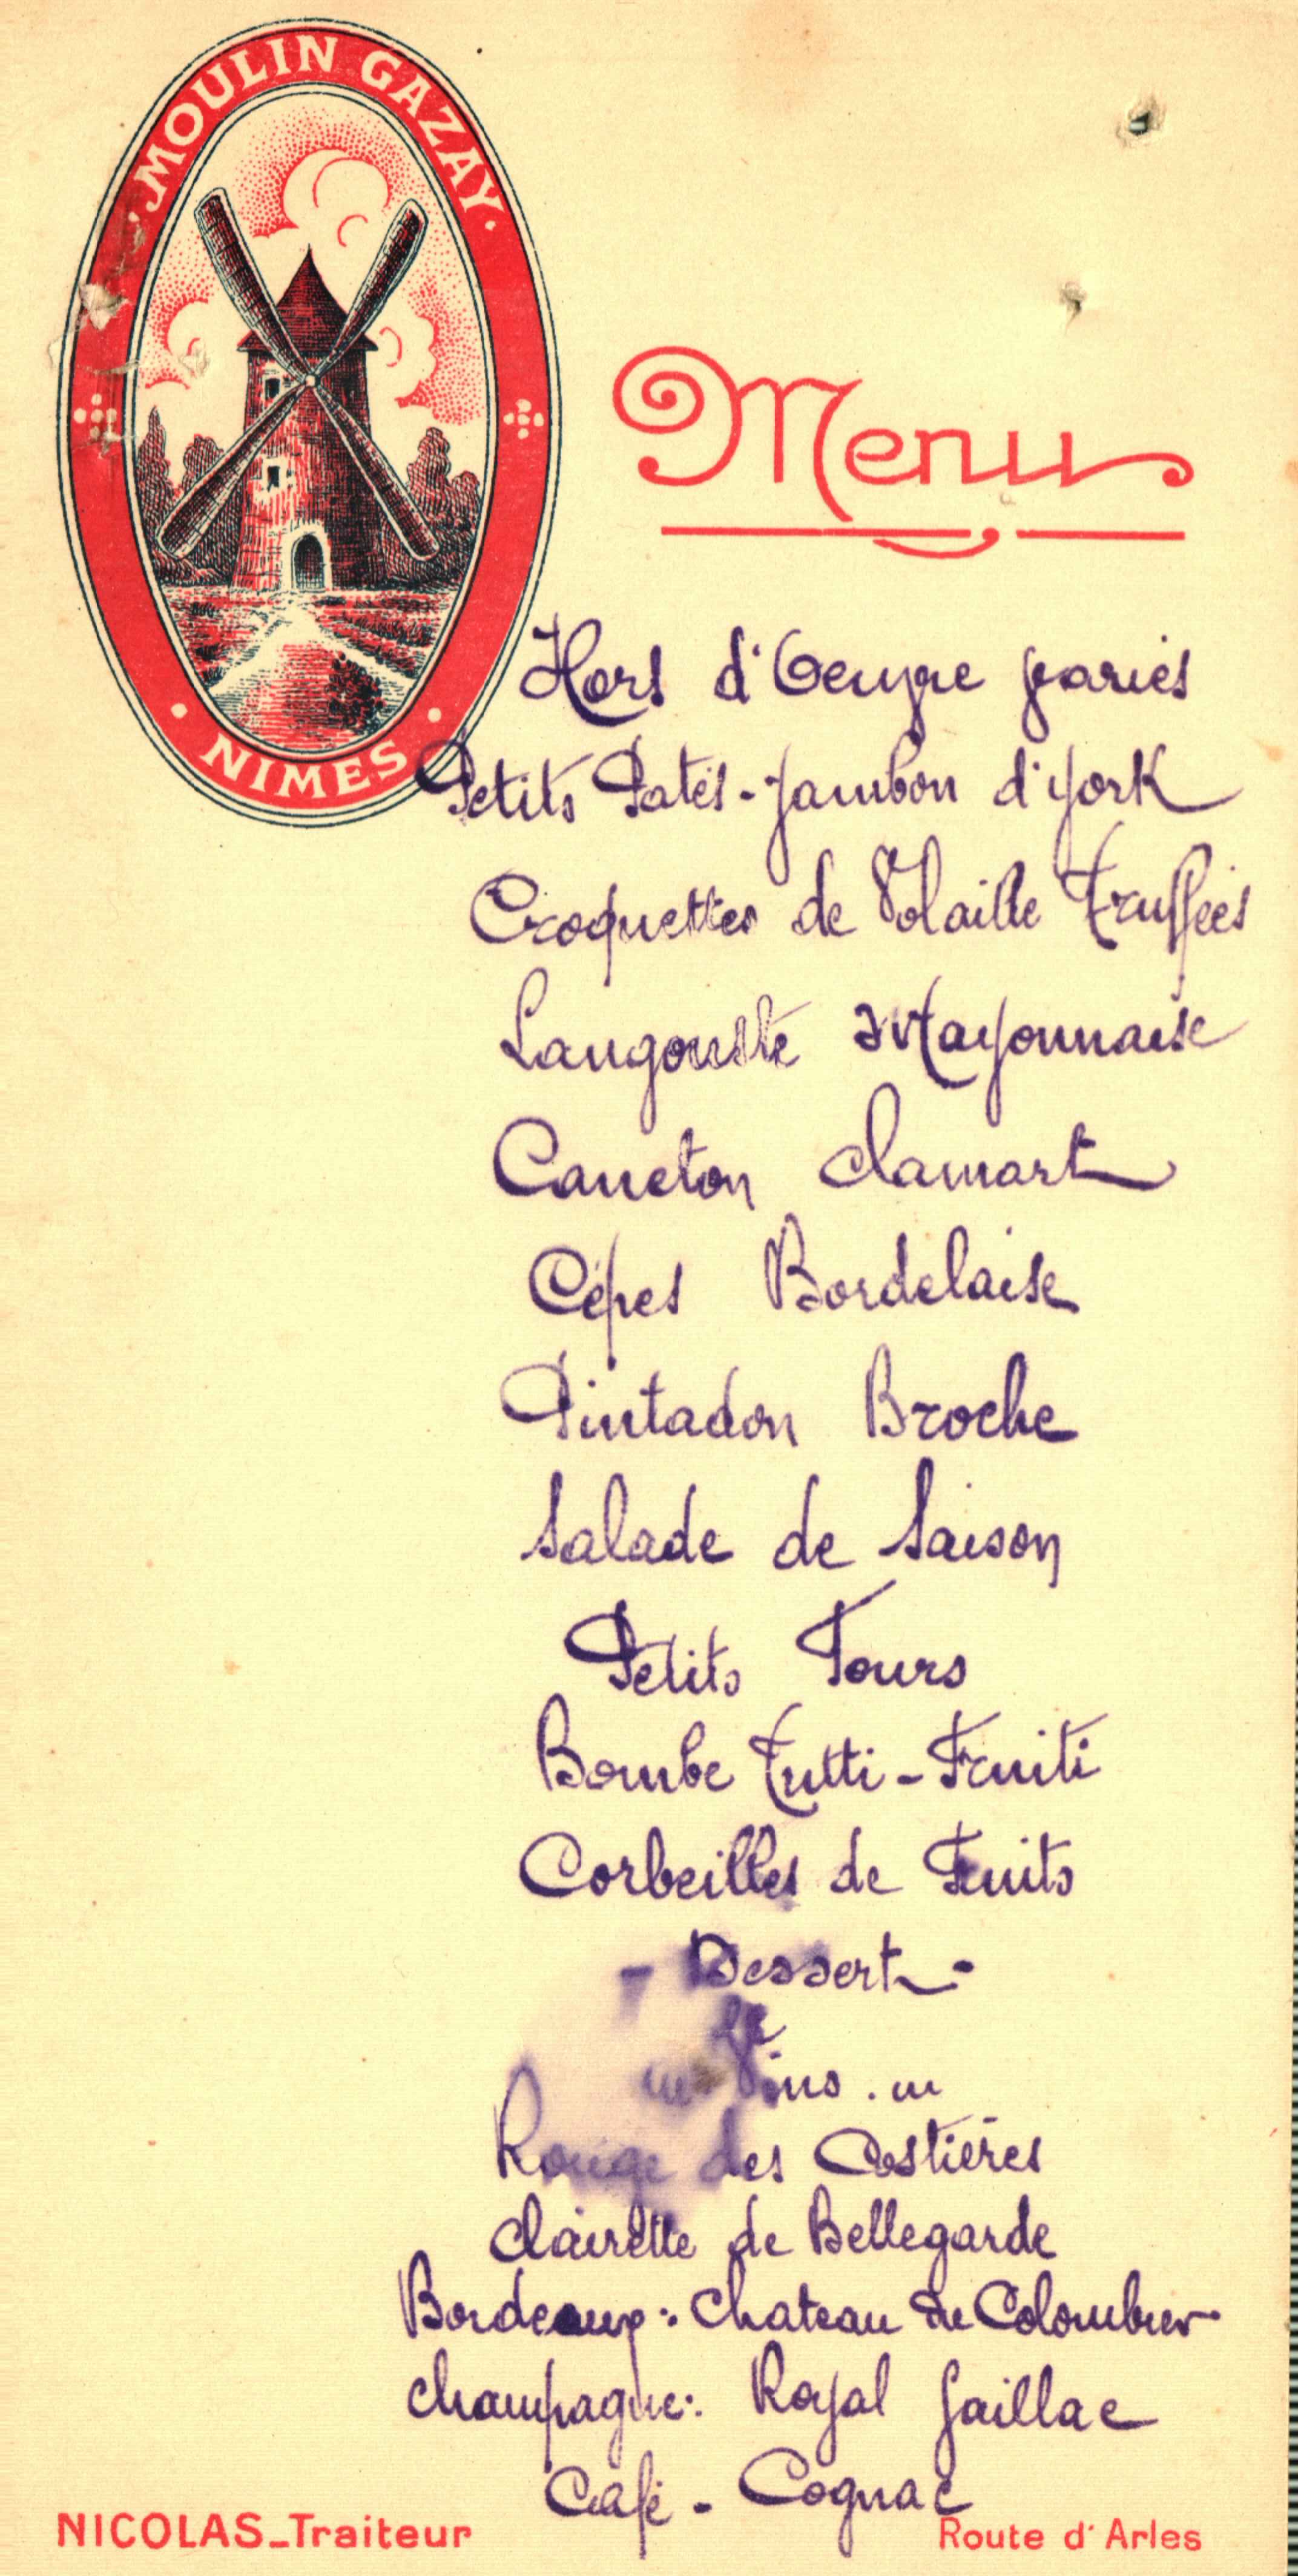 MOULIN GAZAY
NIMES
Menu
Hors d'Oeuvre variés
Petits Patés - Jambon d'york
Croquettes de Volaille Truffées
Langouste Mayonnaise
Caneton Clamart
Cépes Bordelaise
Pintadon Broche
Salade de Saison
Petits Fours
Bombe Tutti-Fruiti
Corbeilles de Fruits
- Dessert -
Vins
Rouge des Costières
Clairette de Bellegarde
Bordeaux : Chateau du Colombier
Champagne : Royal Gaillac
Café - Cognac
NICOLAS_Traiteur
Route d'Arles